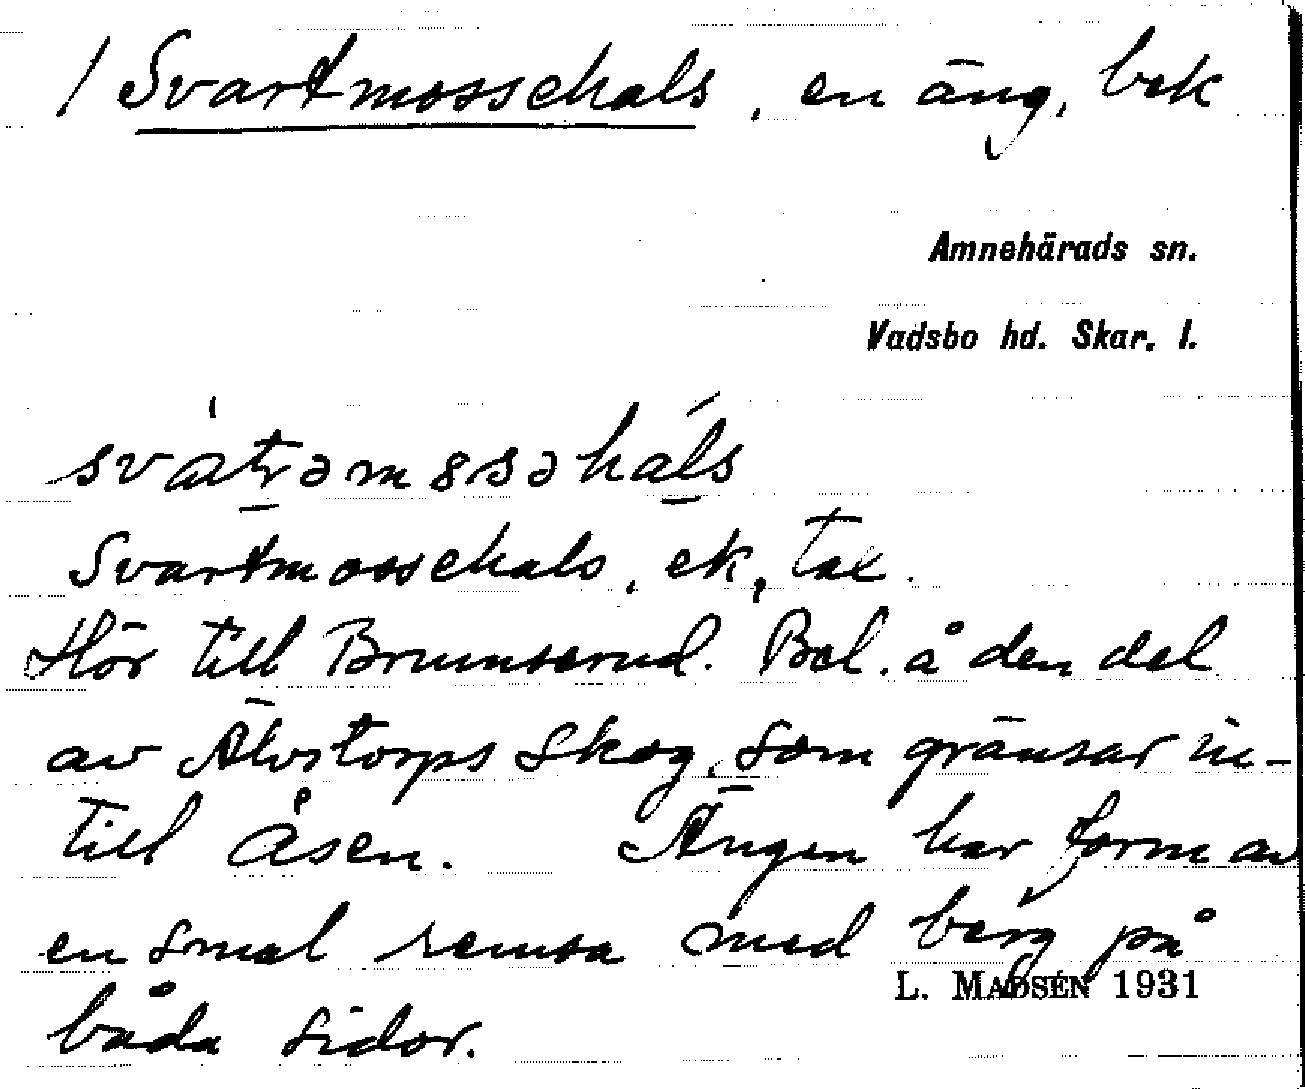 / Svartmossehals, en äng, bek
Amnehärads sn.
Vadsbo hd. Skar. l.
Svartmossehals, ek, tax.
Hör till Brumserud. Bel. å den del
av Älvstorps skog, som gränsar in-
till Åsen. Ängen har form av
en smal remsa med berg på
L. MADSÉN 1931
båda sidor.